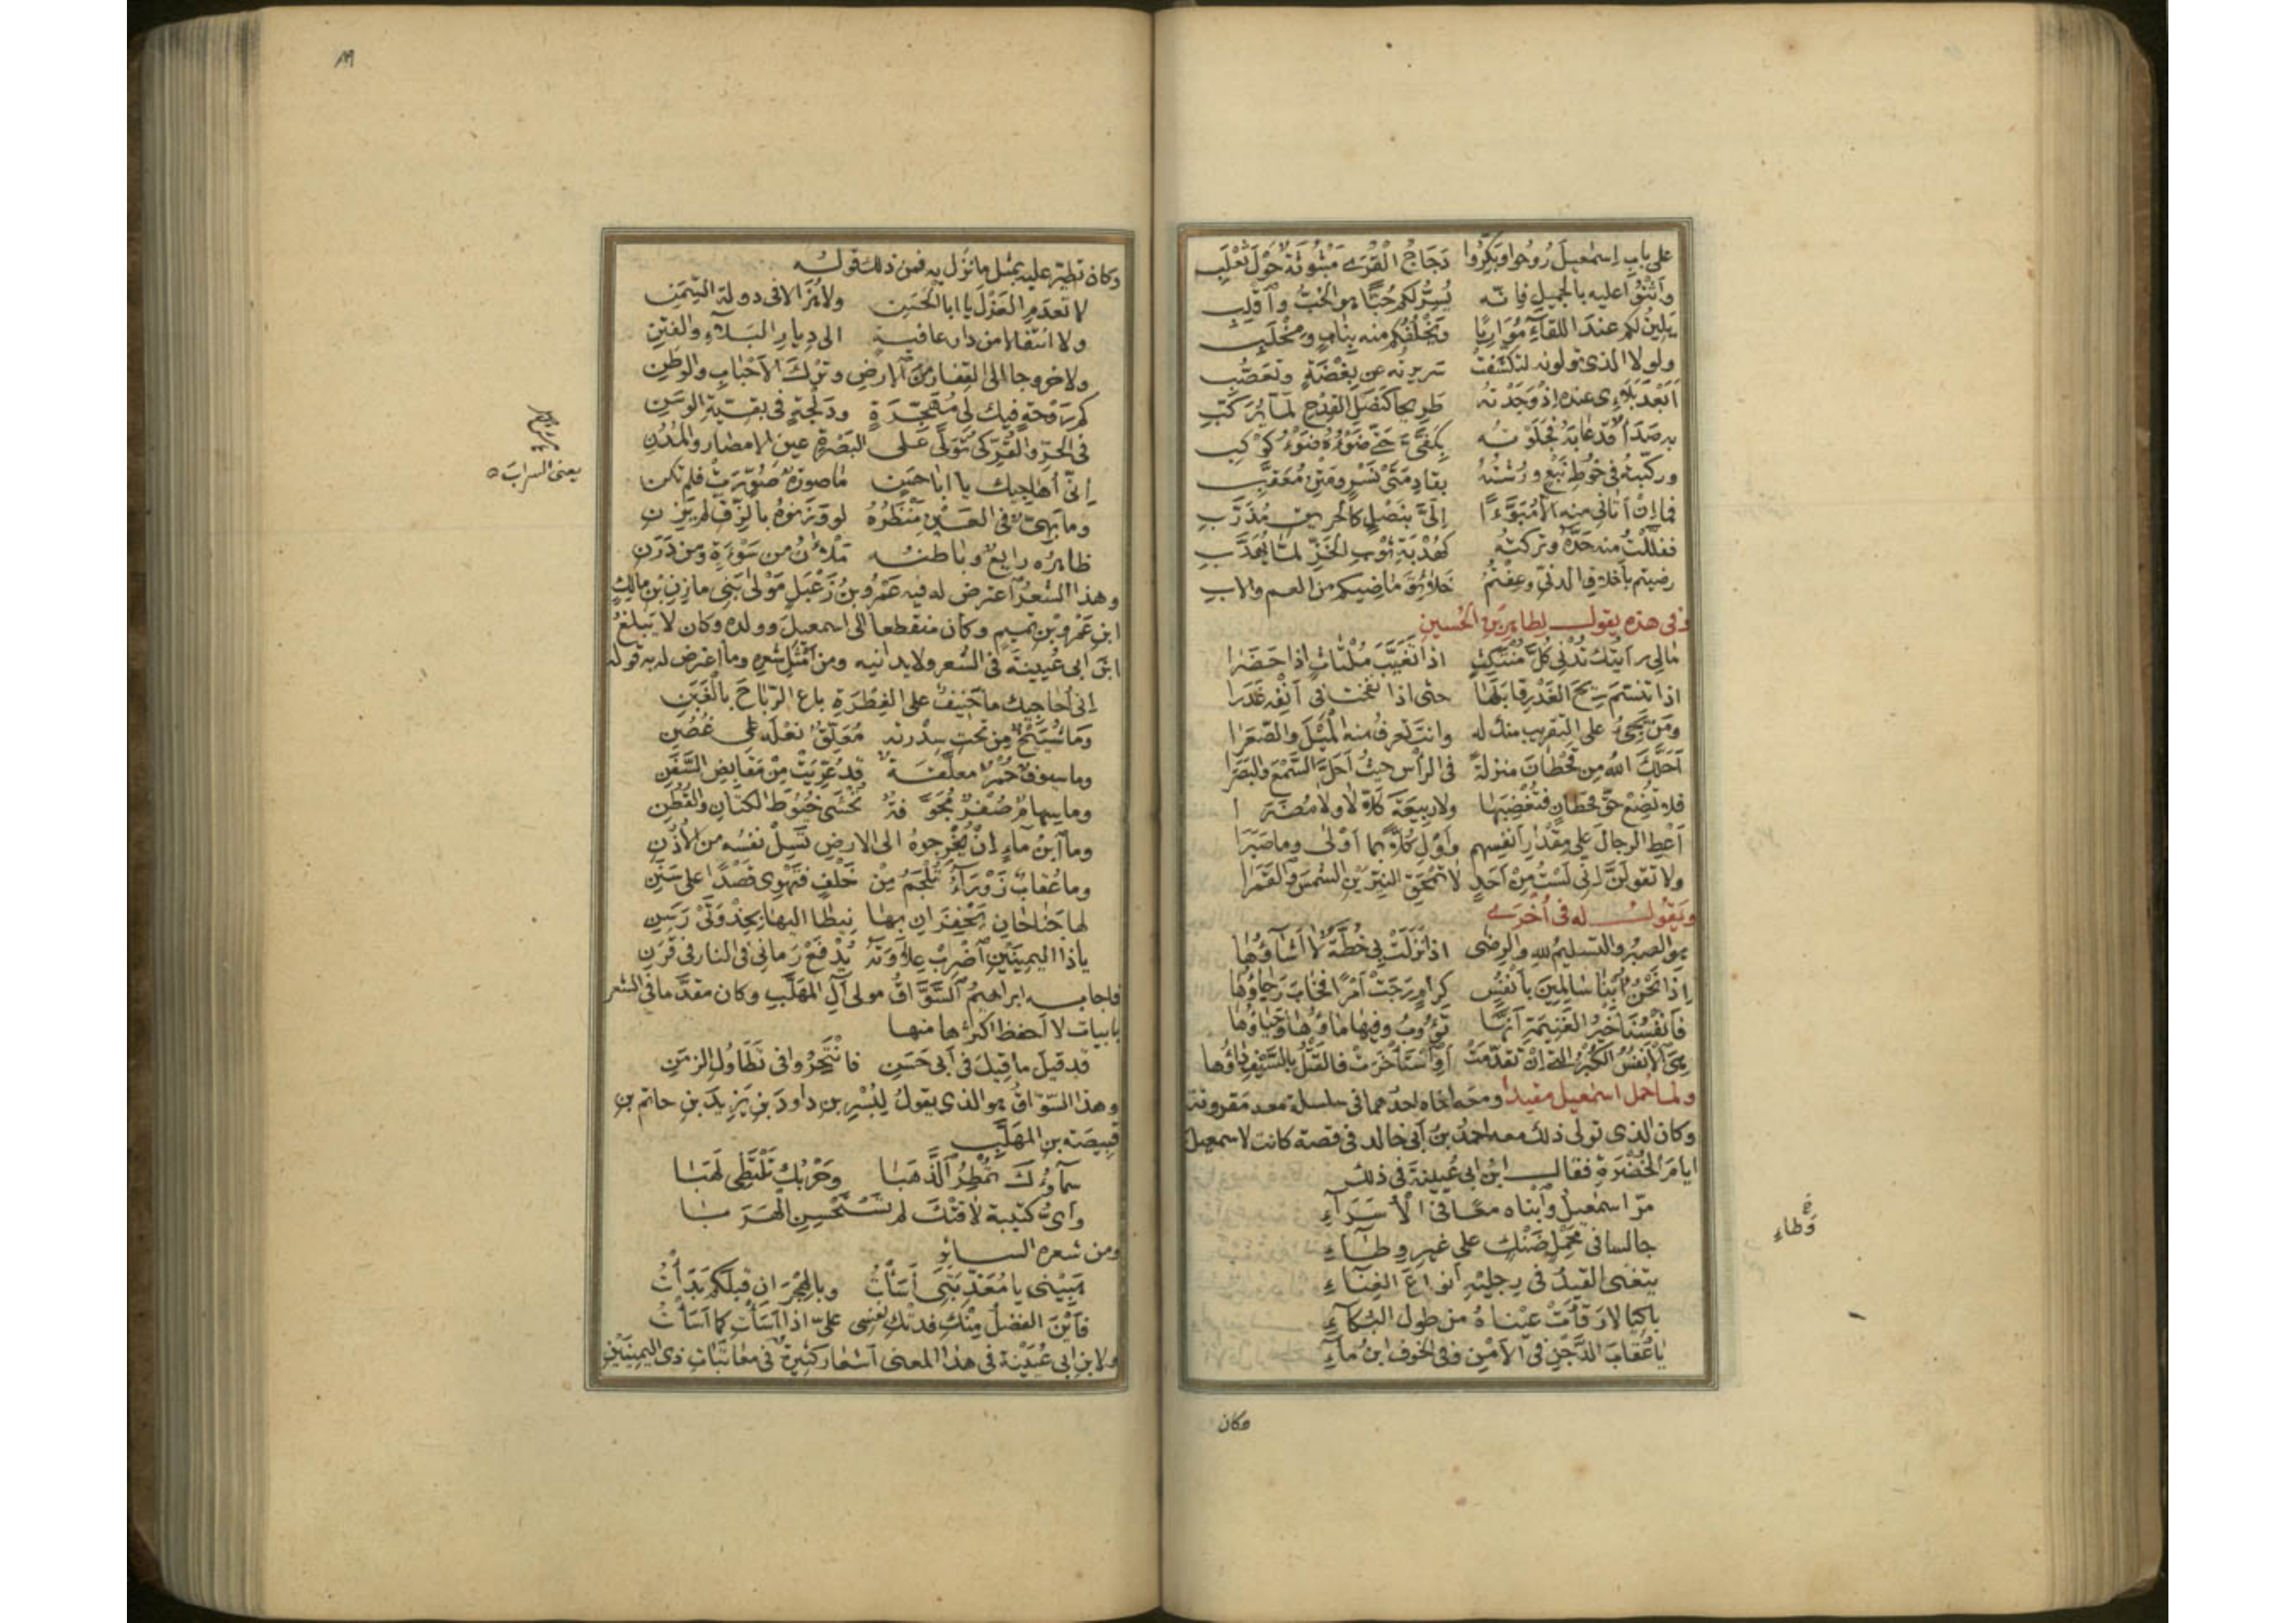 على باب إسمعيل رُوحوا وبَكِّروا دَجاجَ القُرَى مبثوثةً حَوْلَ ثَعْلَبِ
وأثنوا عليه بالجميل فإنّه يُسِرُّ لكم حُبًّا هو الخِبُّ واقلب
يَلينُ لكم عند اللقاءِ مُوَارِيًا ويَخْلُفُكم منه بنابٍ ومِخْلَبِ
ولولا الذي تولونه لتكشفت سريرته عن بِغْضَةٍ وتعصُّب
أبَعْدَ بَلاءِى عنده إذ وَجَدْتُه طريحا كنصل القِدْحِ لمّا يُرَكَّبِ
به صَدَأٌ قد عابَهُ فجلوته بكفَّىَّ حتى ضَوْءُه ضَوْءُ كوكب
وركّبتُه في خُوطِ نبعٍ ورُشْتُهُ بقادمَتَىْ نَسْرٍ ومتنٍ مُعَقَّبِ
فما إنْ أتاني منه إلا مُبَوَّءًا إلىَّ بنصلٍ كالحريق مُذَرَّبِ
ففلَّلْتُ منه حَدَّهُ وتركتُه كهُدْبَةِ ثَوْبِ الخَزِّ لمّا يُهَدَّبِ
رضيتم بأخلاق الدنىّ وعِفْتُمُ خلائق ماضيكم من العم والاب
وفي هذه يقول لطاهر بن الحُسين
مالي رأيتك تُدْنِى كلَّ مُنْتَكِثٍ اذا تغيَّبَ مُلْتاثٍ اذا حَضَرَا
اذا تنسَّم ريحَ الغَدْرِ قابَلَها حتى اذا نفخت في أنْفِه غَدَرا
ومَن يَجِىءُ على التقريب منك له وانت تعرف منه المَيْلَ والصَّعَرا
أحَلَّكَ اللهُ مِن قحطانَ منزلةً في الرأس حيثُ أحَلَّ السَّمْعَ والبَصَرَا
فلا تُضِعْ حقَّ قحطانٍ فتُغْضِبَها ولا ربيعةَ كَلّا لا ولا مُضَرَا
أعْطِ الرجالَ على مِقْدارِ أنفسهم وأوْلِ كُلًّا بما أوْلَى وما صَبَرَا
ولا تقولَنَّ إنّي لَسْتُ مِنْ أحَدٍ لا تَمْحَقِ النيّرَيْنِ الشمسَ والقَمَرا
ويَقُولُ له في أُخْرَى
هو الصبرُ والتسليمُ لله والرِضَى اذا نَزَلَتْ بي خُطَّةٌ لا أشاؤُها
إذا نَحْنُ أُبْنا سالِمِينَ بأنفُسٍ كرامٍ رَجَتْ أمرًا فخابَ رَجاؤُها
فأنفُسُنا خيرُ الغنيمةِ أنّها تَؤُوبُ وفيها ماؤُها وحَياؤُها
هى الأنفُسُ الكُبْرُ التي إنْ تقدّمَتْ أو استأخَرَتْ فالقَتْلُ بالسَّيْفِ داؤُها
ولما حُمل اسمعيل مقيدا ومعه ابناه احدهما في سلسلة معه مقرونة
وكان الذي تولى ذلك معه احمدُ بنُ أبي خالد في قصة كانت لاسمعيل
ايامَ الخُضْرَةِ فقال ابن ابي عُيينة في ذلك
مرّ اسمعيلُ وابناه معًا في الأُسَرَآءِ
جالسا في مَحْمِلٍ ضَنْكٍ على غيرِ وطآءِ
يتغنى القَيْدُ في رجليْهِ انواعَ الغِنآءِ
باكيًا لا رَقَأَتْ عَيْناهُ من طول البُكآءِ
يا عُقابَ الدَّجْنِ في الأمْنِ وفي الخوفِ ابنُ مآءِ
وَطاء
وكان
وكان تطيّر عليه بمثل ما نزل به فمن ذلك قوله
لا تعدَمِ العَزْلَ يا ابا الحَسَنِ ولا هُزَالا في دولة السِّمَنِ
ولا انتقالا من دار عافيةٍ الى ديار البَلآءِ والفِتَنِ
ولا خروجا الى القِفارِ من الارضِ وتَرْكَ الأحْبابِ والوَطنِ
كم رَوْحةٍ فيك لي مُهَجِّرَةٍ ودُلْجَةٍ في بقيّةِ الوَسَنِ
في الحَرِّ والقُرِّ كى تُوَلَّى على البَصْرةِ عينِ الامصارِ والمُدُنِ
إنّي أُحاجيك يا ابا حَسَنٍ ما صورةٌ صُوِّرَتْ فلم تكن
وما بَهِىٌّ في العَيْنِ مَنْظَرُهُ لو وَزَنُوهُ بالزِّفِّ لم يَزِنِ
ظاهرُه رايعٌ وباطنُه مَلآنُ من سَوْءَةٍ ومن دَرَنِ
وهذا الشعرُ اعترض له فيه عَمْرُو بنُ زَعْبَلٍ مَوْلَى بَنِي مازِنِ بْنِ مالِكِ
ابن عَمْرِو بْنِ تميمٍ وكان منقطعا الى اسمعيلَ وولده وكان لا يَبْلُغُ
ابنَ ابي عُيينةَ في الشعر ولا يدانيه ومن أمْثَلِ شعره وما اعترض له به قوله
إني أُحاجيك ما حَنِيفٌ على الفِطْرَةِ باع الرَّباحَ بالغَبَنِ
وما شُيَيْخٌ مِن تحتِ سِدْرتِه مُعَلِّقٌ نعلَه على غُصُنِ
وما سيوفٌ حُمْرٌ معلّقةٌ قد عُرِّيَتْ مِنْ مَقابِضِ السَّفَنِ
وما سِهامٌ صُفْرٌ مُجَوَّفةٌ تُحْشَى خُيُوطَ الكتّانِ والقُطُنِ
وما ابنُ مآءٍ إنْ يُخْرِجوهُ الى الارضِ تَسِلْ نفسُه من الأُذُنِ
وما عُقابٌ زَوْرَآءُ تُلْجَمُ مِنْ خَلْفٍ فتَهْوِى قَصْدًا على سَنَنِ
لها جَناحانِ يَحْفِزانِ بها نِيطا اليها بحذْوَتَىْ رَسَنِ
يا ذا اليمينَيْنِ اضْرِبْ عِلاوَتَهُ يُدْفَعْ زَمانِي في النار في قَرَنِ
فاجابه ابراهيمُ السَّوَّاقُ مولى آلِ المهلَّب وكان مقدَّما في الشعر
بابيات لا أحفظ اكثرها منها
قد قيلَ ما قِيلَ في أبي حَسَنٍ فانْتَحِرُوا في تَطاوُلِ الزمَنِ
وهذا السوّاقُ هو الذي يقولُ لِبِشْرِ بنِ داودَ بنِ يَزِيدَ بنِ حاتمِ بنِ
قبيصةَ بنِ المهَلَّبِ
سمآؤكَ تُمْطِرُ الذَّهَبَا وحَرْبُكَ تَلْتَظِى لَهَبَا
وأىُّ كتيبةٍ لاقَتْكَ لم تَسْتَحْسِنِ الهَرَبَا
ومن شعره السائر
هَبِينِي يا مُعَذِّبَتِي أَسَأْتُ وبالهِجْرانِ قبلَكم بَدَأْتُ
فأينَ الفضلُ مِنْكِ فدتْكِ نفسى علىّ اذا اسَأْتِ كما أسَأْتُ
ولابنِ ابي عُيَيْنَةَ في هذا المعنى اشعار كثيرة في معاتباتِ ذي اليمينَيْنِ
يعني السراب